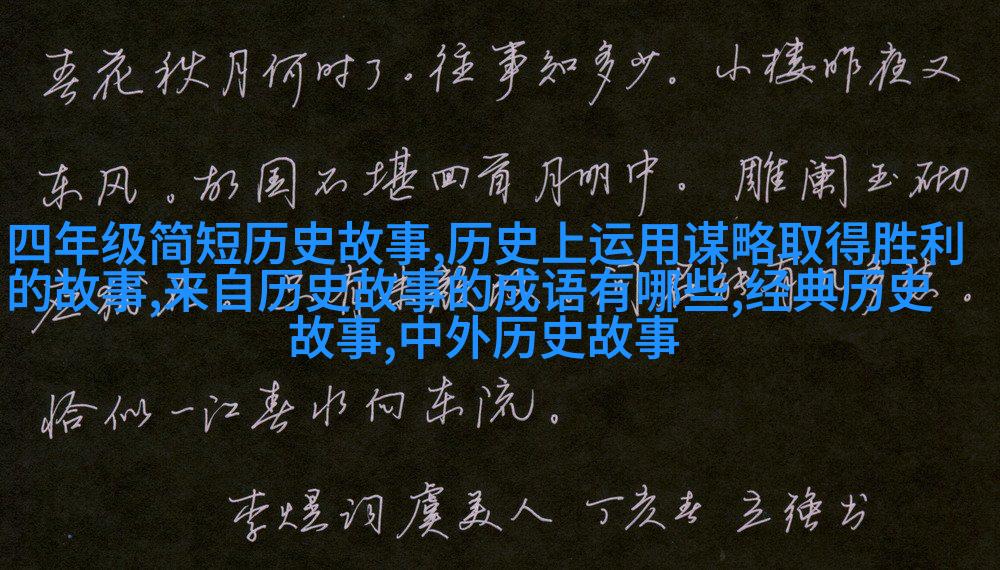 春花秋月何时了。往事知多少。小楼昨夜又
东风。故国不堪回首月明中。雕阑玉砌
四年级简短历史故事,历史上运用谋略取得胜利
的故事,来自历史故事的成语有哪些,经典历史
故事,中外历史故事
恰似一江春水向东流。
李煜词虞美人 丁亥春 立强书